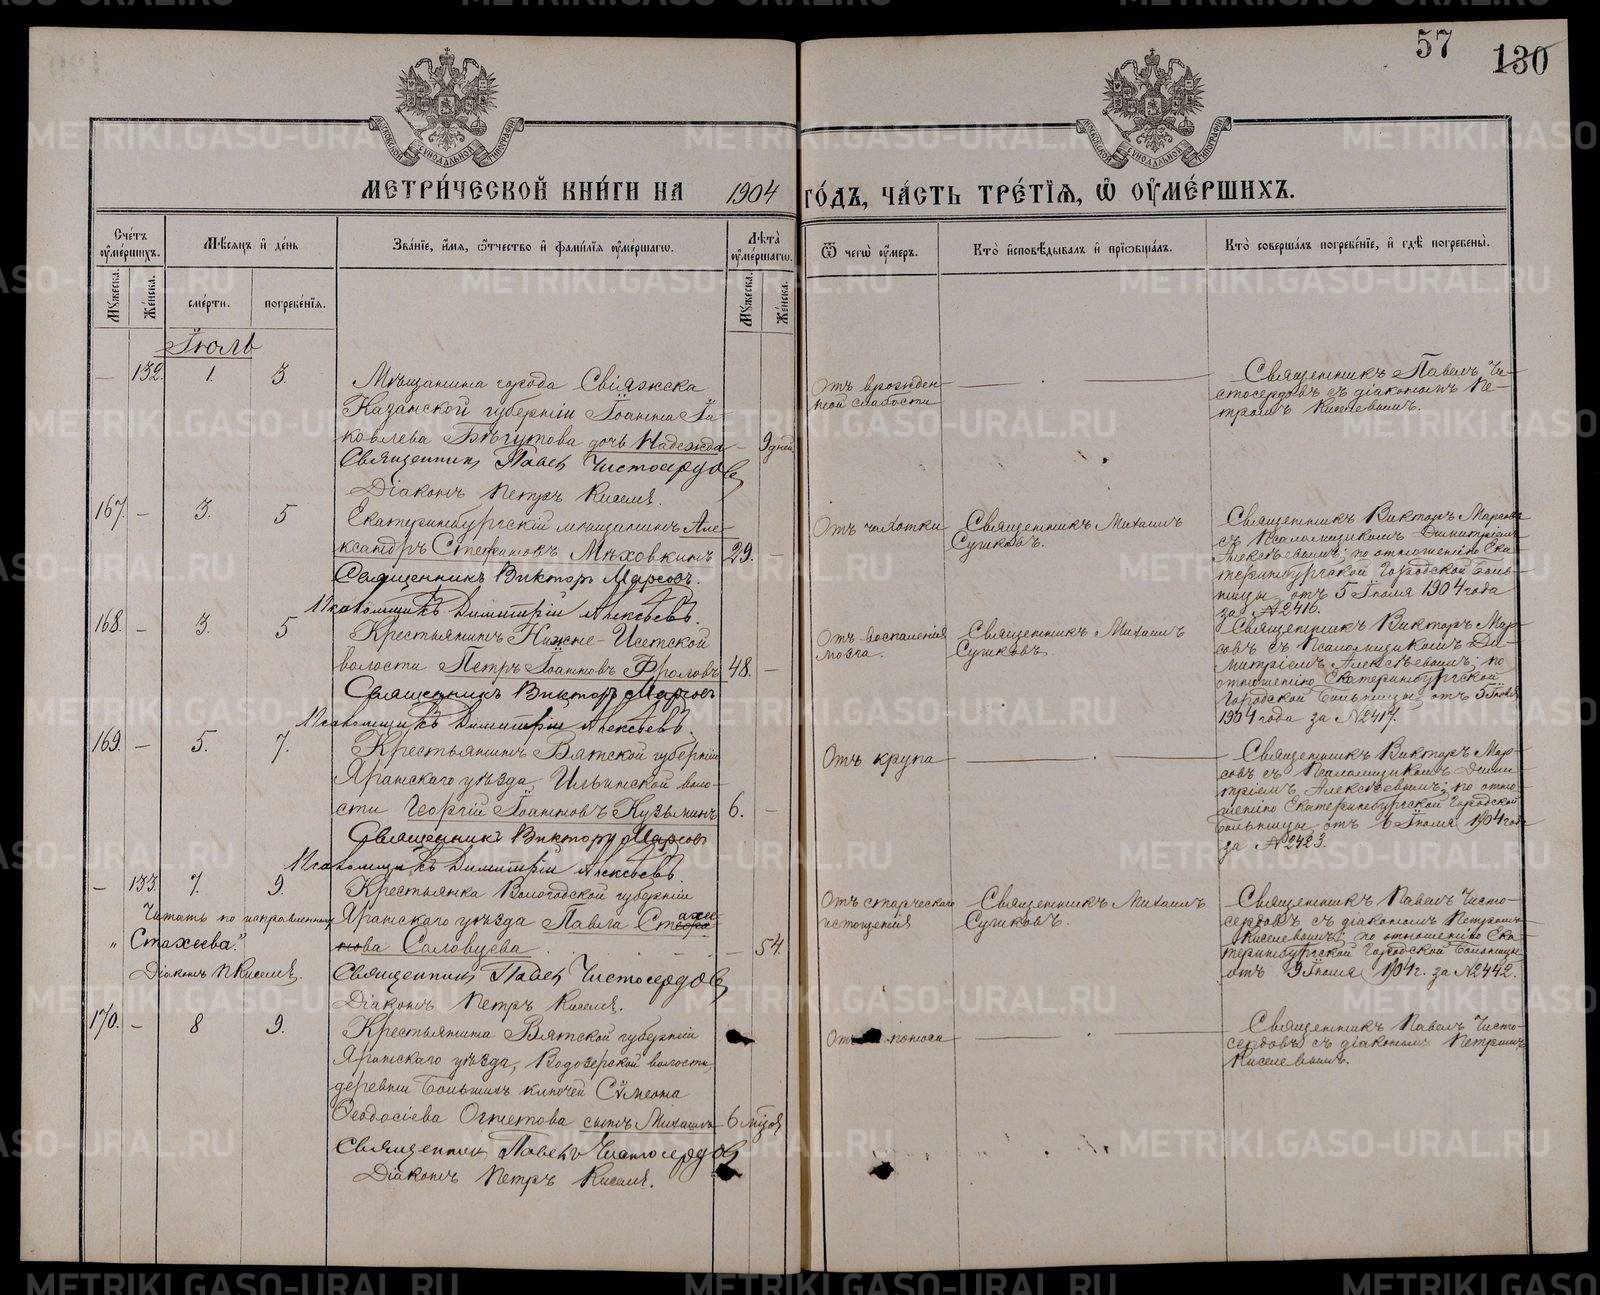 57
130
МОСКОВСКОЙ СѴНОДАЛЬНОЙ ТИПОГРАФІИ
МОСКОВСКОЙ СѴНОДАЛЬНОЙ ТИПОГРАФІИ
МЕТРИ́ЧЕСКОЙ КНИ́ГИ НА 1904 ГО́ДЪ, ЧА́СТЬ ТРЕ́ТІѦ, Ѽ ОУ҆МЕ́РШИХЪ.
Сче́тъ оу҆ме́ршихъ.
Мꙋжеска.
Же́нска.
Мѣ́сяцъ и҆ де́нь
сме́рти.
погребе́нїѧ.
Зва́нїе, и҆́мѧ, ѻ҆́тчество и҆ фами́лїѧ оу҆ме́ршагѡ.
Лѣ́та оу҆ме́ршагѡ.
Мꙋжеска.
Же́нска.
Ѿ чегѡ̀ оу҆́меръ.
Кто̀ и҆сповѣ́дывалъ и҆ прїѡбща́лъ.
Кто̀ соверша́лъ погребе́нїе, и҆ гдѣ̀ погребены̀.
Іюль
— 132. 1. 3.
Мѣщанина города Свіяжска
Казанской губерніи Іоанна Іа-
ковлева Бѣгутова дочь Надежда — 9 дней
Священникъ Павелъ Чистосердовъ
Діаконъ Петръ Киселевъ.
Отъ врожден-
ной слабости
Священникъ Павелъ Чи-
стосердовъ съ діакономъ Пе-
тромъ Киселевымъ.
167. — 3. 5
Екатеринбургскій мѣщанинъ Але-
ксандръ Стефановъ Мѣховкинъ 29. —
Священникъ Викторъ Марсовъ.
Псаломщикъ Димитрій Алексѣевъ.
Отъ чахотки
Священникъ Михаилъ
Сушковъ.
Священникъ Викторъ Марсовъ
съ Псаломщикомъ Димитріемъ
Алексѣевымъ; по отношенію Ека-
теринбургской Городской Боль-
ницы отъ 5 Іюля 1904 года
за № 2416.
168. — 3. 5
Крестьянинъ Нижне-Исетской
волости Петръ Іоанновъ Фроловъ 48. —
Священникъ Викторъ Марсовъ
Псаломщикъ Димитрій Алексѣевъ.
Отъ воспаленія
мозга.
Священникъ Михаилъ
Сушковъ
Священникъ Викторъ Мар-
совъ съ Псаломщикомъ Ди-
митріемъ Алексѣевымъ; по
отношенію Екатеринбургской
Городской Больницы отъ 5 Іюля
1904 года за № 2417.
169. — 5. 7.
Крестьянинъ Вятской губерніи
Яранскаго уѣзда, Ильинской воло-
сти Георгій Іоанновъ Кузьминъ 6. —
Священникъ Викторъ Марсовъ
Псаломщикъ Димитрій Алексѣевъ.
Отъ крупа
Священникъ Викторъ Мар-
совъ съ Псаломщикомъ Дими-
тріемъ Алексѣевымъ; по отно-
шенію Екатеринбургской Городской
Больницы отъ 6 Іюля 1904 года
за № 2423.
— 133. 7. 9.
Крестьянка Вологодской губерніи
Яранскаго уѣзда Павла
Соловцева — 54.
Священникъ Павелъ Чистосердовъ
Діаконъ Петръ Киселевъ.
Читать по исправленному
„Стахеева."
Діаконъ П Киселевъ.
Отъ старческаго
истощенія
Священникъ Михаилъ
Сушковъ.
Священникъ Павелъ Чисто-
сердовъ съ діакономъ Петромъ
Киселевымъ; по отношенію Ека-
теринбургской Городской Больницы
отъ 9 Іюля 1904 г. за № 2442.
170. — 8 9.
Крестьянина Вятской губерніи
Яранскаго уѣзда, Водозерской волости,
деревни Большихъ ключей Сѵмеона
Ѳеодосіева Огнетова сынъ Михаилъ 6 мѣсяц
Священникъ Павелъ Чистосердовъ
Діаконъ Петръ Киселевъ.
Отъ поноса
Священникъ Павелъ Чисто-
сердовъ съ діакономъ Петромъ
Киселевымъ.
METRIKI.GASO-URAL.RU